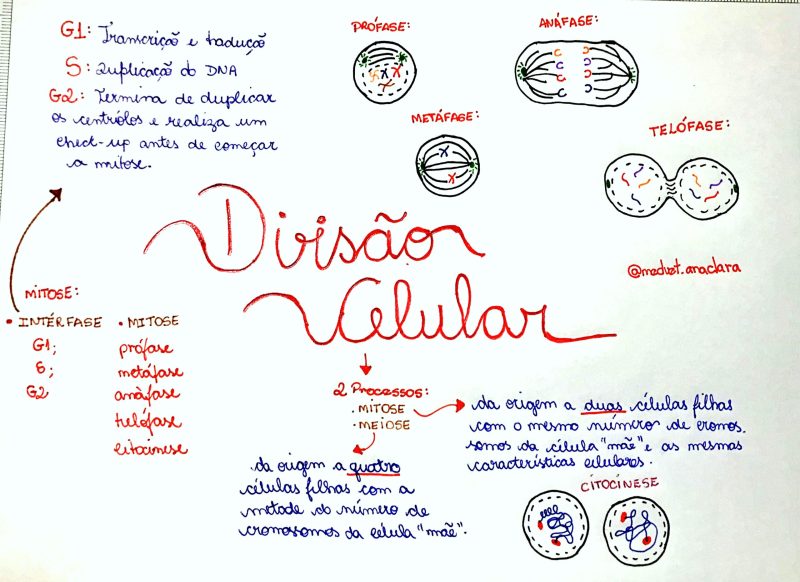 G1: Transcrição e tradução
S: Duplicação do DNA
G2: Termina de duplicar
os centríolos e realiza um
check-up antes de começar
a mitose.
PRÓFASE:
ANÁFASE:
METÁFASE:
TELÓFASE:
Divisão
Celular
@medvet.anaclara
MITOSE:
• INTÉRFASE
G1;
S;
G2
• MITOSE
prófase
metáfase
anáfase
telófase
citocinese
2 Processos:
. MITOSE
. MEIOSE
da origem a duas células filhas
com o mesmo número de cromos.
somos da célula "mãe" e as mesmas
características celulares.
da origem a quatro
células filhas com a
metade do número de
cromossomos da célula "mãe".
CITOCÍNESE